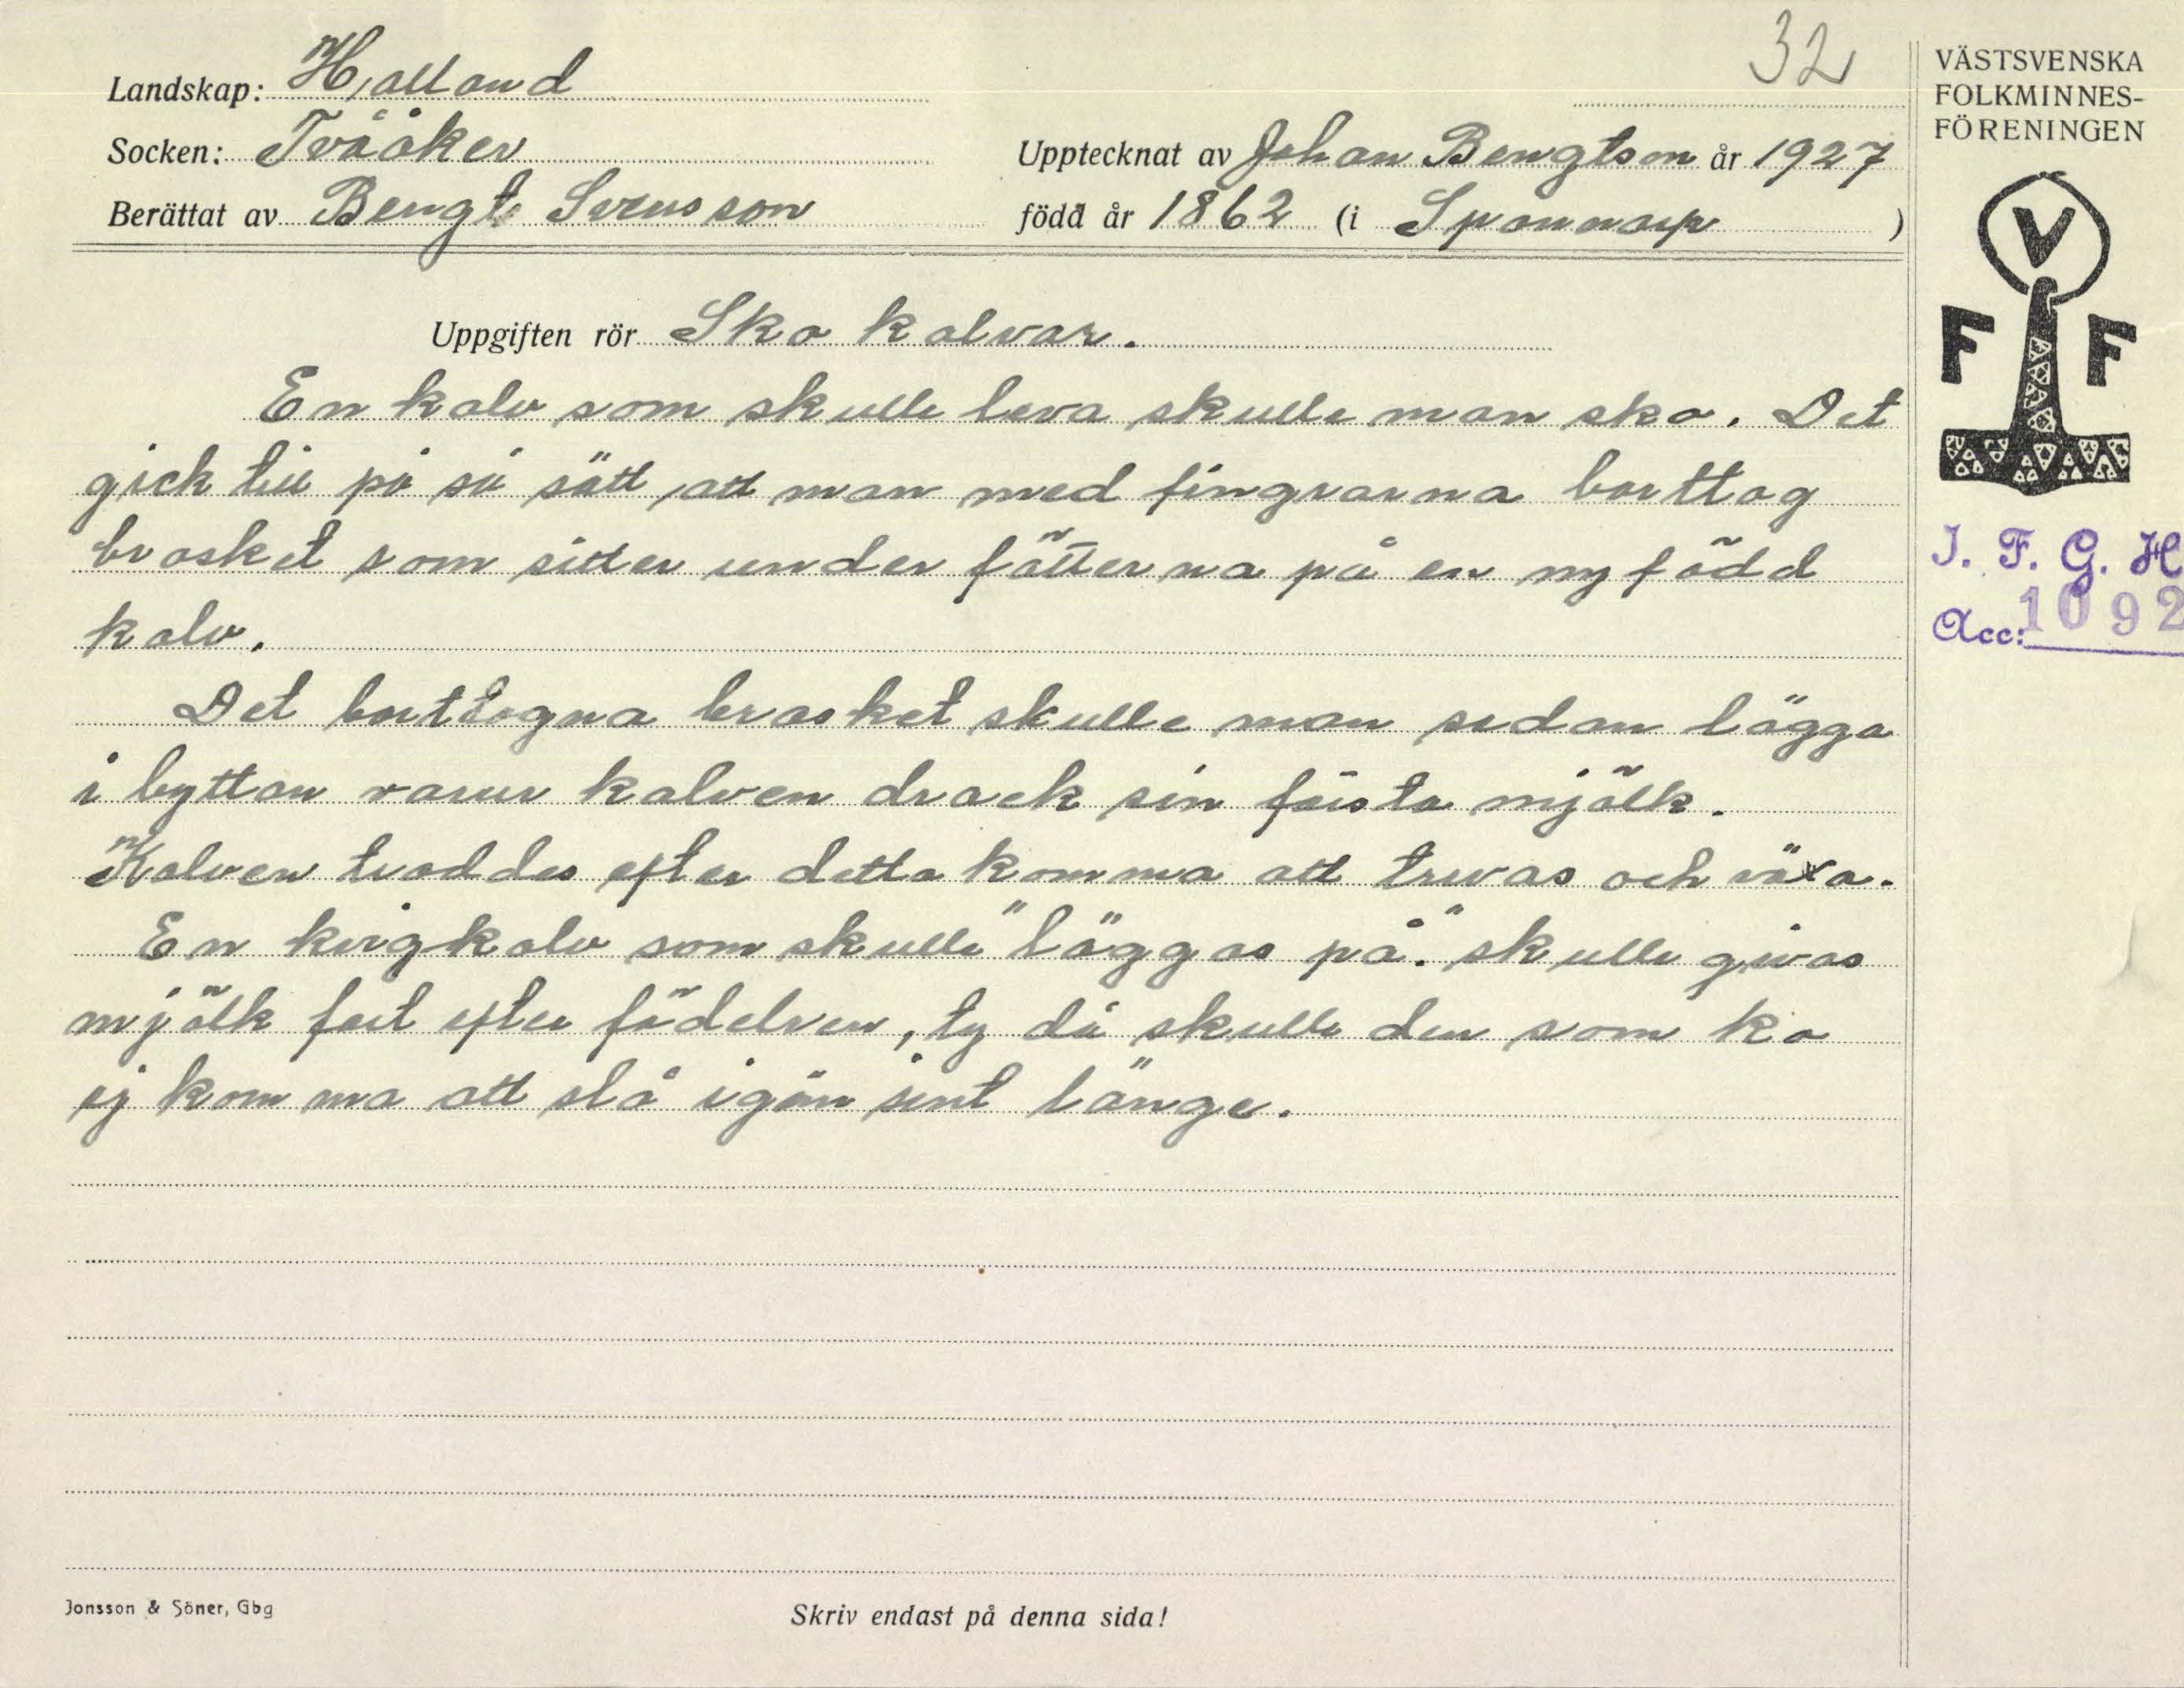 32
Landskap: Halland
Socken: Tvååker
Upptecknat av Johan Bengtson år 1927
Berättat av Bengt Svensson
född år 1862 (i Spannarp)
VÄSTSVENSKA
FOLKMINNES-
FÖRENINGEN
V
F F
I. F. G. H
Acc: 1092
Uppgiften rör Sko kalvar.
En kalv som skulle leva skulle man sko. Det
gick till på så sätt, att man med fingrarna borttog
brosket som sitter under fötterna på en nyfödd
kalv.
Det borttogna brosket skulle man sedan lägga
i byttan varur kalven drack sin första mjölk.
Kalven troddes efter detta komma att trivas och växa.
En kvigkalv som skulle "läggas på." skulle givas
mjölk fort efter födelsen, ty då skulle den som ko
ej komma att stå igän sint länge.
Jonsson & Söner, Gbg
Skriv endast på denna sida!